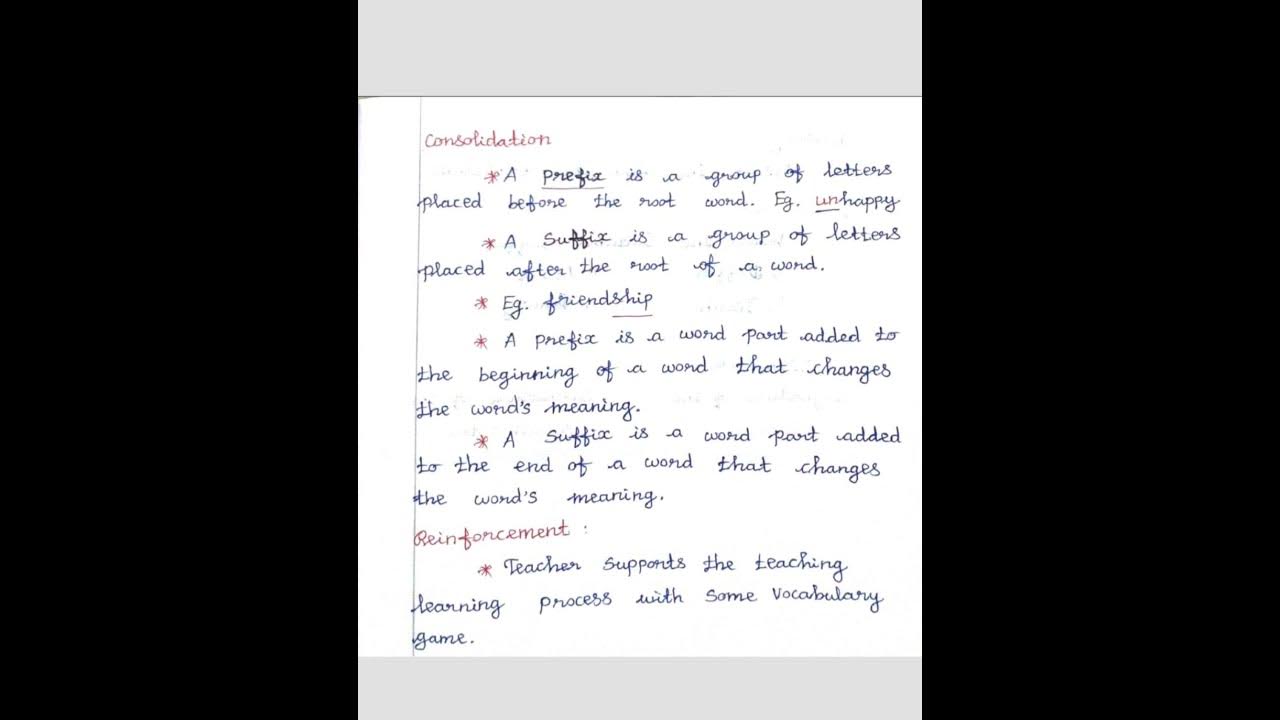 Consolidation
* A prefix is a group of letters
placed before the root word. Eg. unhappy
* A Suffix is a group of letters
placed after the root of a word.
* Eg. friendship
* A prefix is a word part added to
the beginning of a word that changes
the word's meaning.
* A Suffix is a word part added
to the end of a word that changes
the word's meaning.
Reinforcement :
* Teacher supports the teaching
learning process with some vocabulary
game.